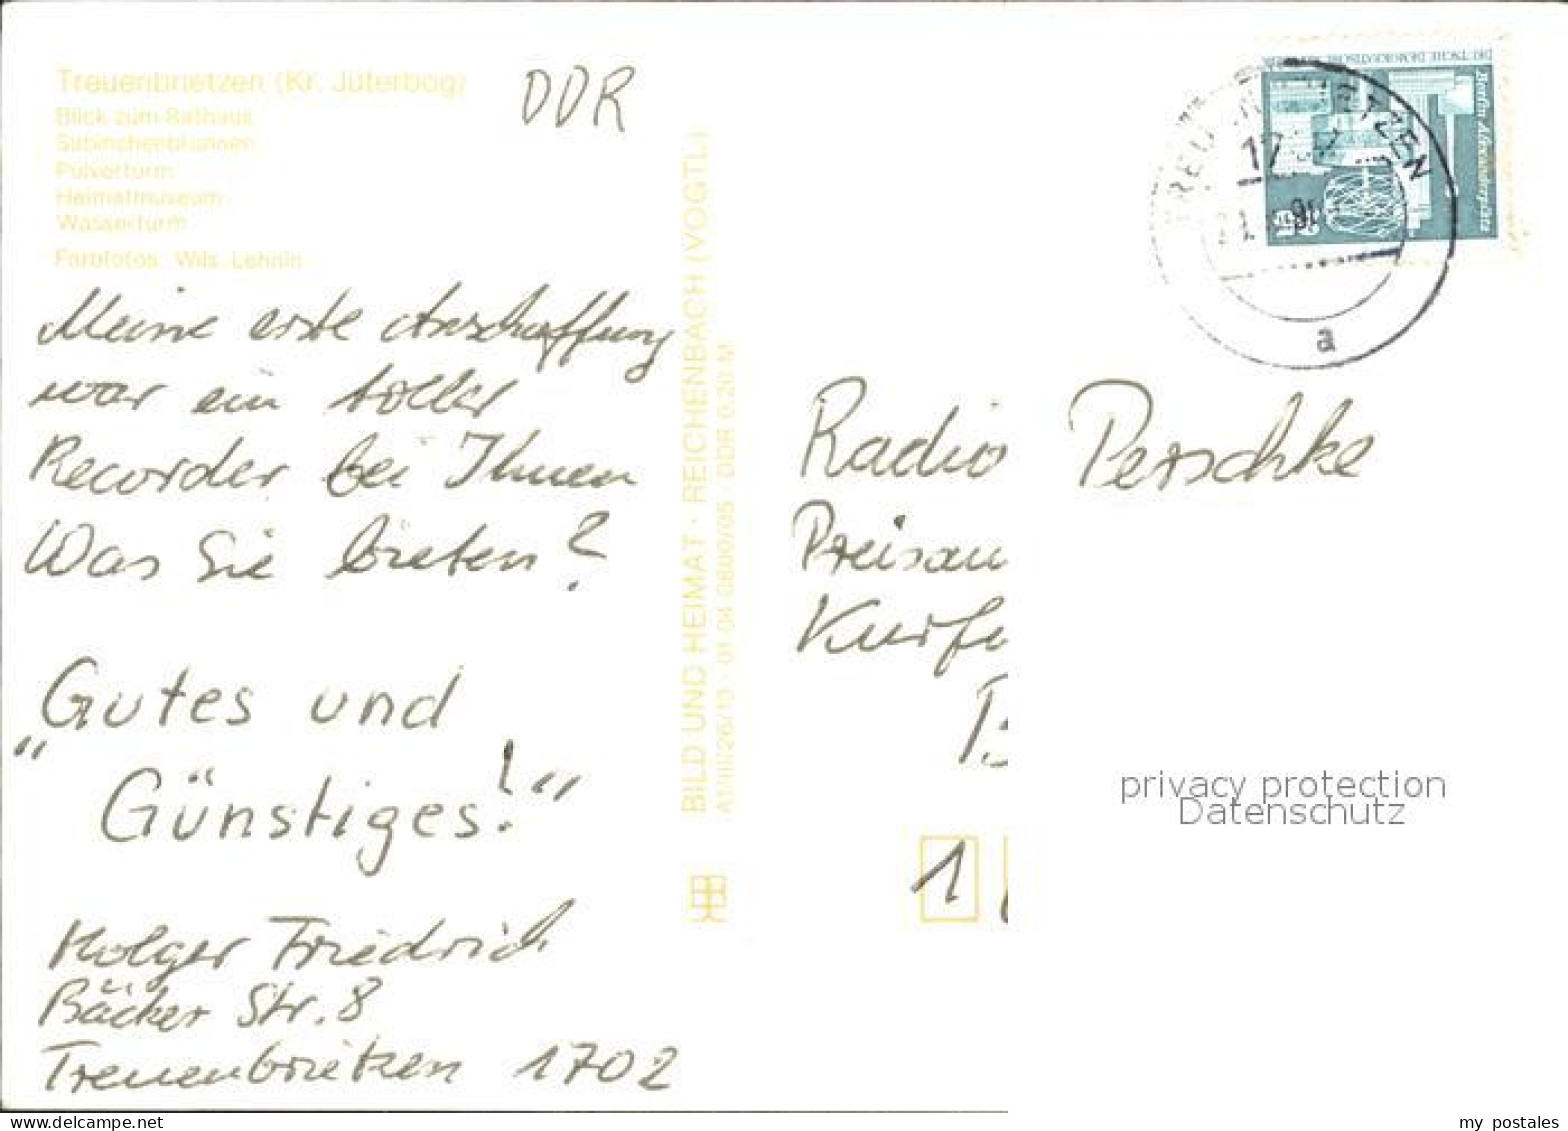 Treuenbrietzen (Kr. Jüterbog)
Blick zum Rathaus
Sabinchenbrunnen
Pulverturm
Heimatmuseum
Wasserturm
Farbfotos: Wils. Lehnin
DDR
Meine erste Anschaffung
war ein toller
Recorder bei Ihnen
Was Sie bieten?
"Gutes und
Günstiges!"
Holger Friedrich
Bäcker Str. 8
Treuenbrietzen 1702
BILD UND HEIMAT · REICHENBACH (VOGTL)
A1/III/26/13 · 01 04 0800/05 DDR 0,20 M
DEUTSCHE DEMOKRATISCHE
Berlin, Alexanderplatz
25
TREUENBRIETZEN
1702
a
Radio Perschke
Preisau
Kurfü
1
privacy protection
Datenschutz
my postales